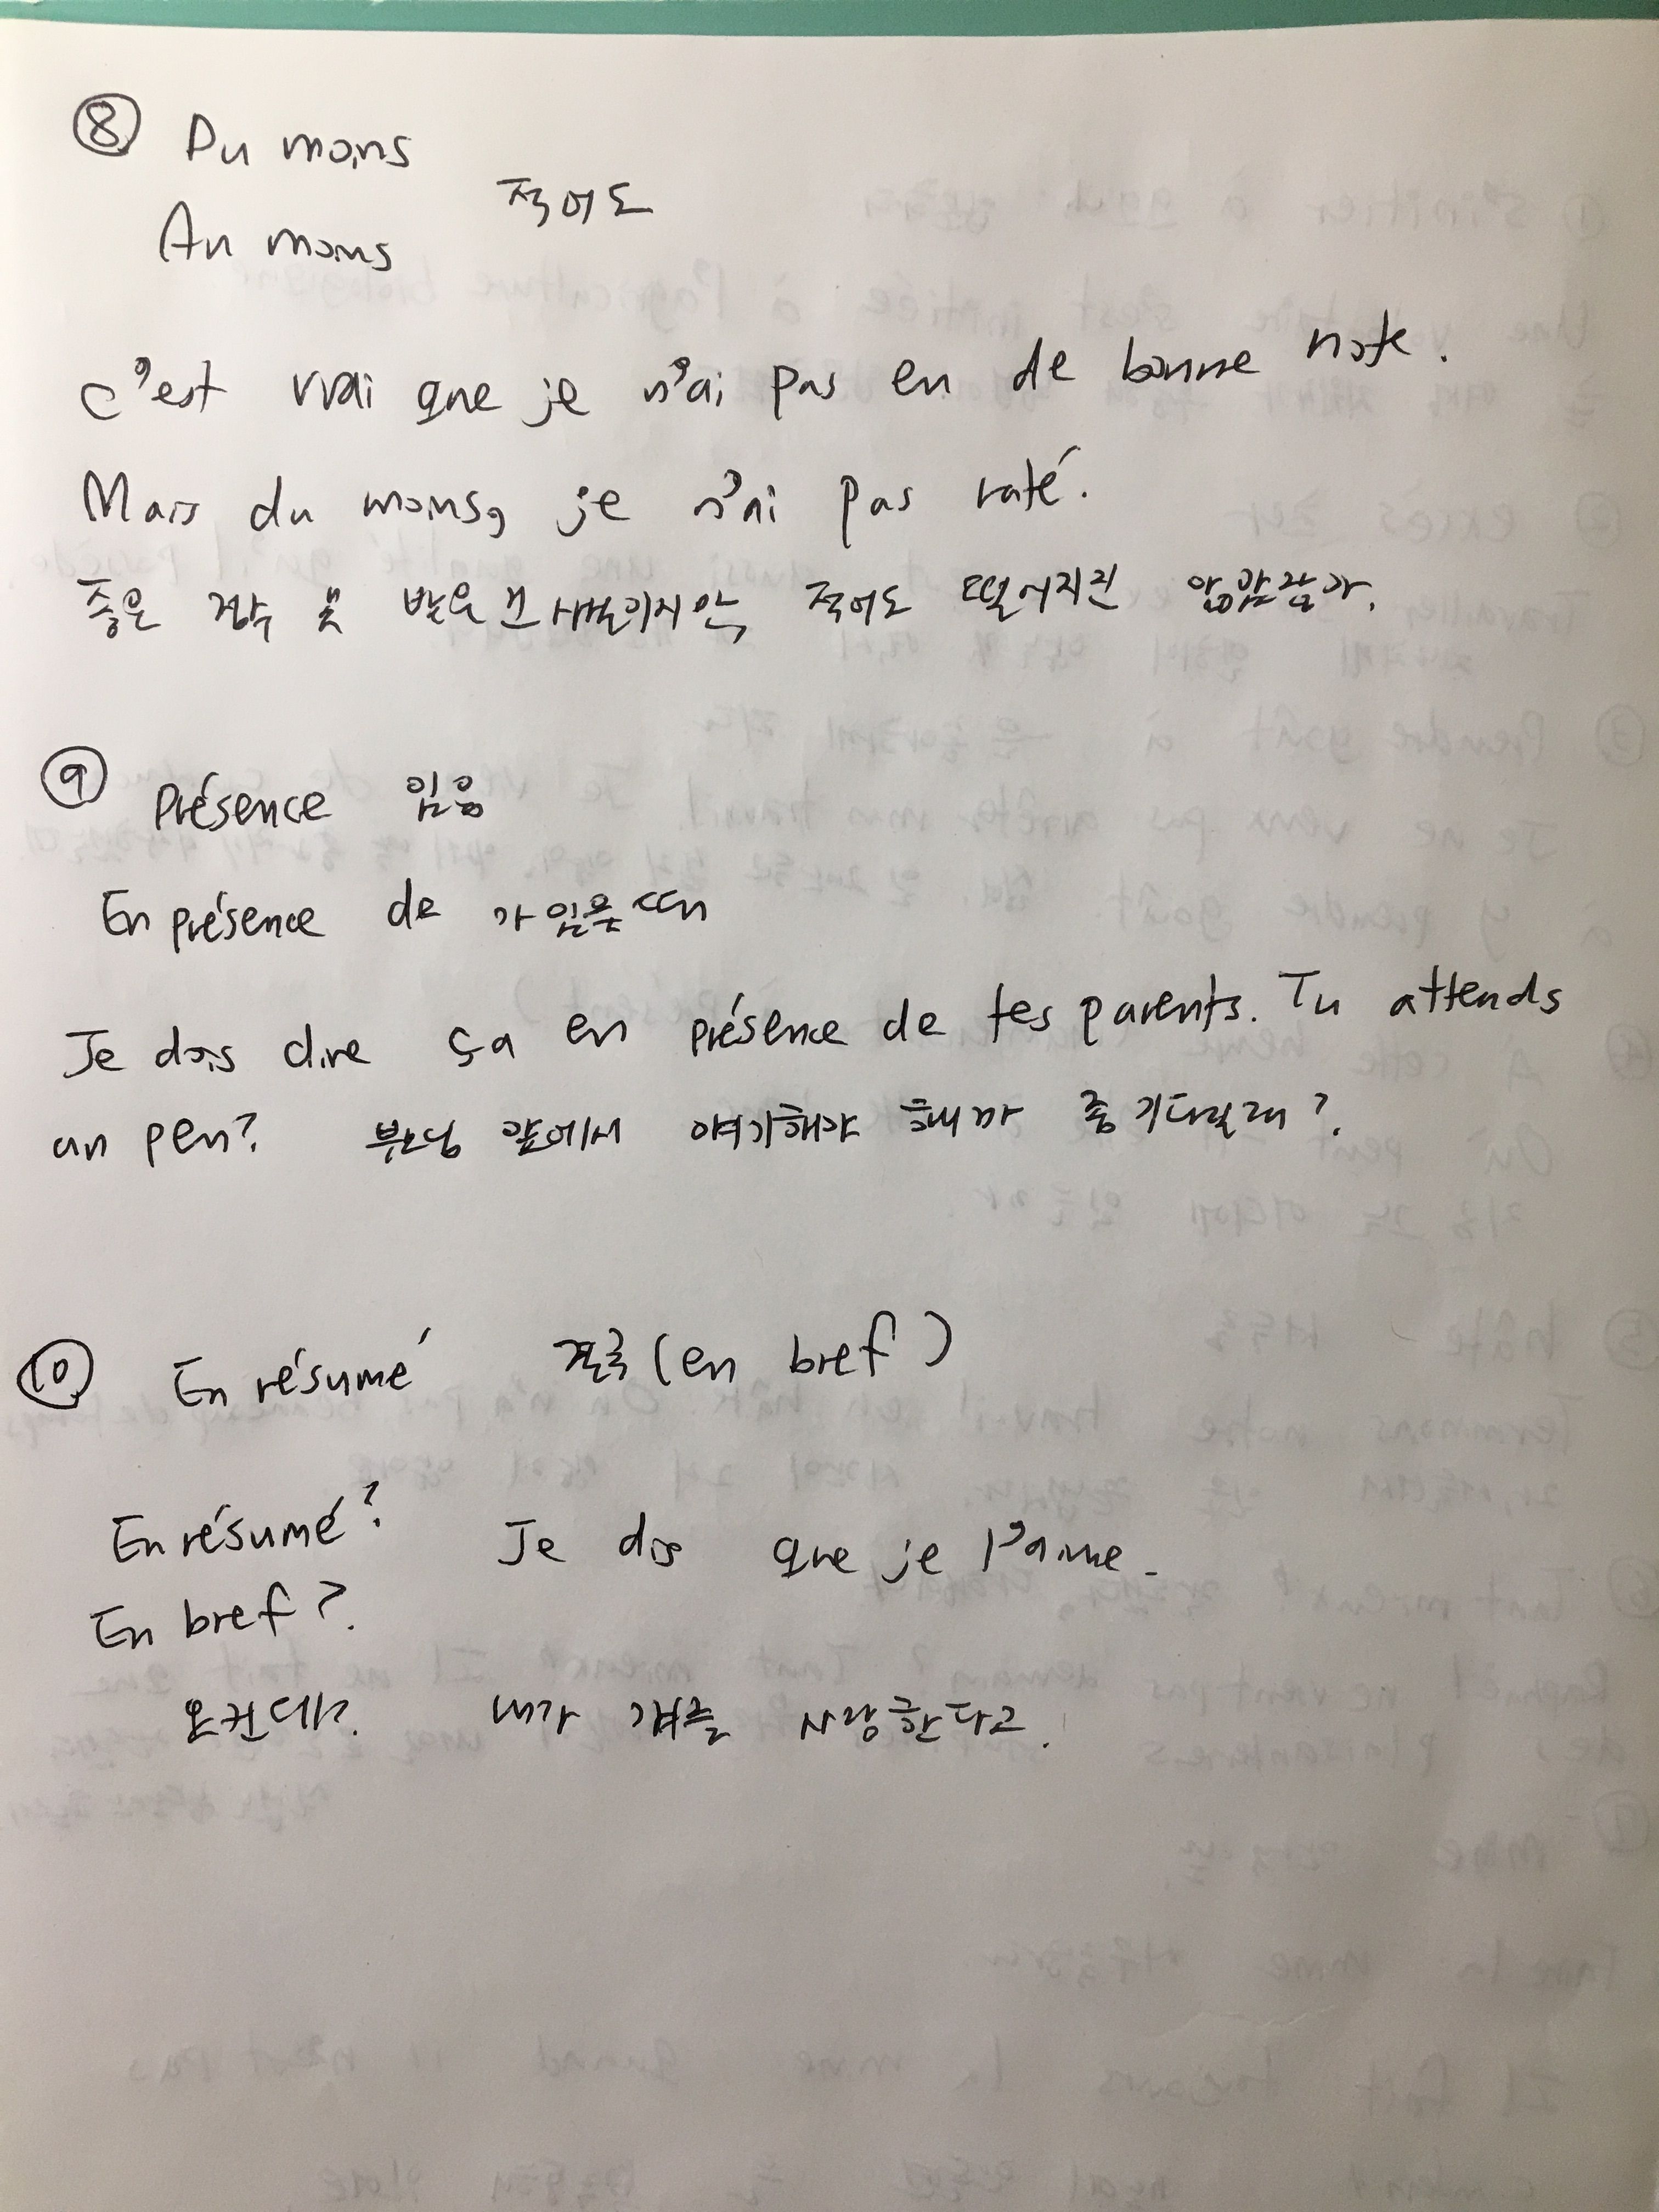 ⑧ Du moins
적어도
Au moins
C'est vrai que je n'ai pas eu de bonne note.
Mais du moins, je n'ai pas raté.
좋은 점수 못 받은 건 사실이지만, 적어도 떨어지진 않았잖아.
⑨ Présence 있음
En présence de 가 있을 때
Je dois dire ça en présence de tes parents. Tu attends
un peu? 부모님 앞에서 얘기해야 해 좀 기다릴래?
⑩ En résumé 결국 (en bref)
En résumé? Je dis que je l'aime.
En bref?
요컨대? 내가 걔를 사랑한다고.